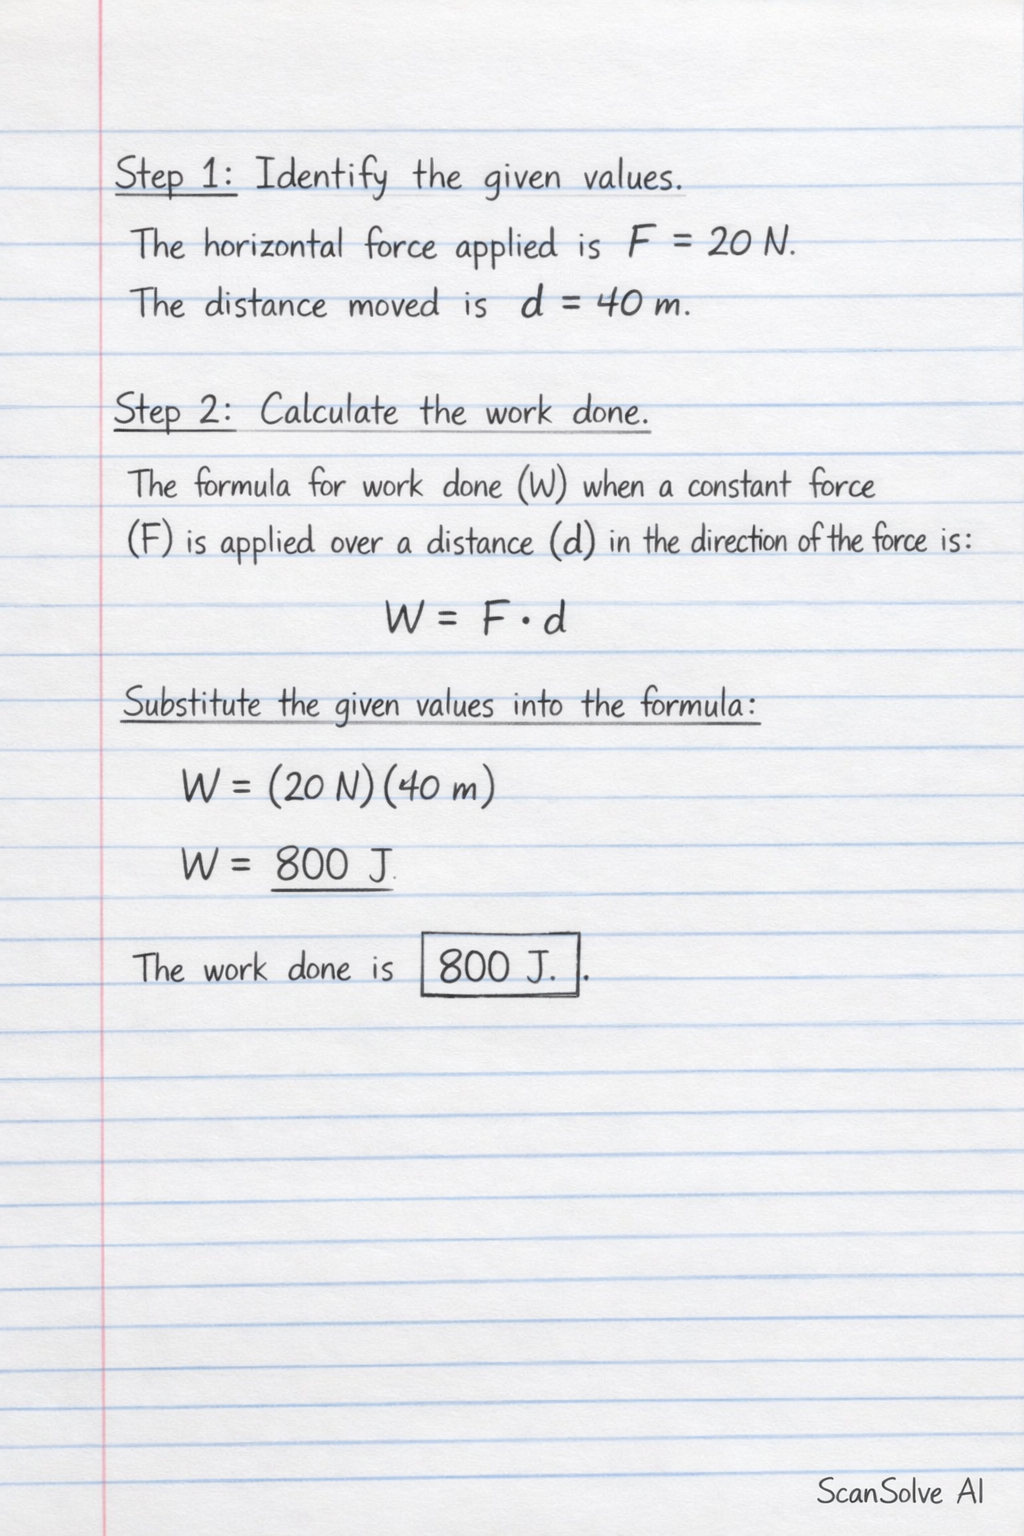 Step 1: Identify the given values.
The horizontal force applied is F = 20 N.
The distance moved is d = 40 m.
Step 2: Calculate the work done.
The formula for work done (W) when a constant force
(F) is applied over a distance (d) in the direction of the force is:
W = F · d
Substitute the given values into the formula:
W = (20 N)(40 m)
W = 800 J.
The work done is 800 J. .
ScanSolve AI